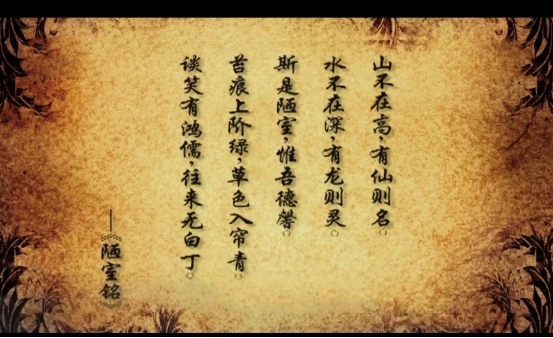 山不在高，有仙则名。
水不在深，有龙则灵。
斯是陋室，惟吾德馨。
苔痕上阶绿，草色入帘青。
谈笑有鸿儒，往来无白丁。
——《陋室铭》